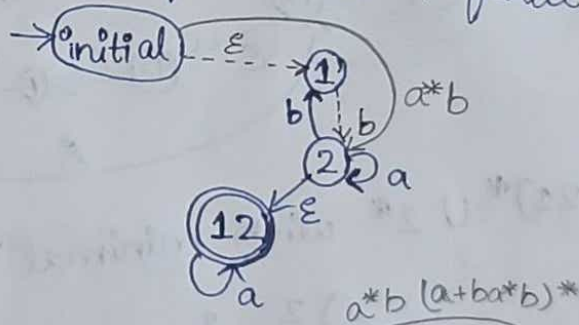 initial
ε
1
a*b
b
b
2
a
ε
12
a
a*b (a+ba*b)*